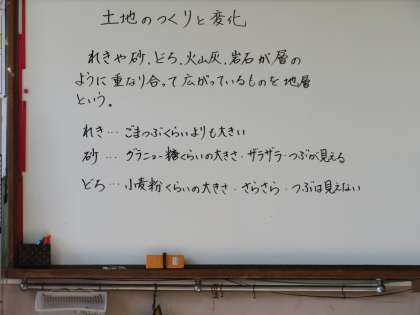 土地のつくりと変化
れきや砂、どろ、火山灰、岩石が層の
ように重なり合って広がっているものを地層
という。
れき…ごまつぶくらいよりも大きい
砂…グラニュー糖くらいの大きさ・ザラザラ・つぶが見える
どろ…小麦粉くらいの大きさ・さらさら・つぶは見えない